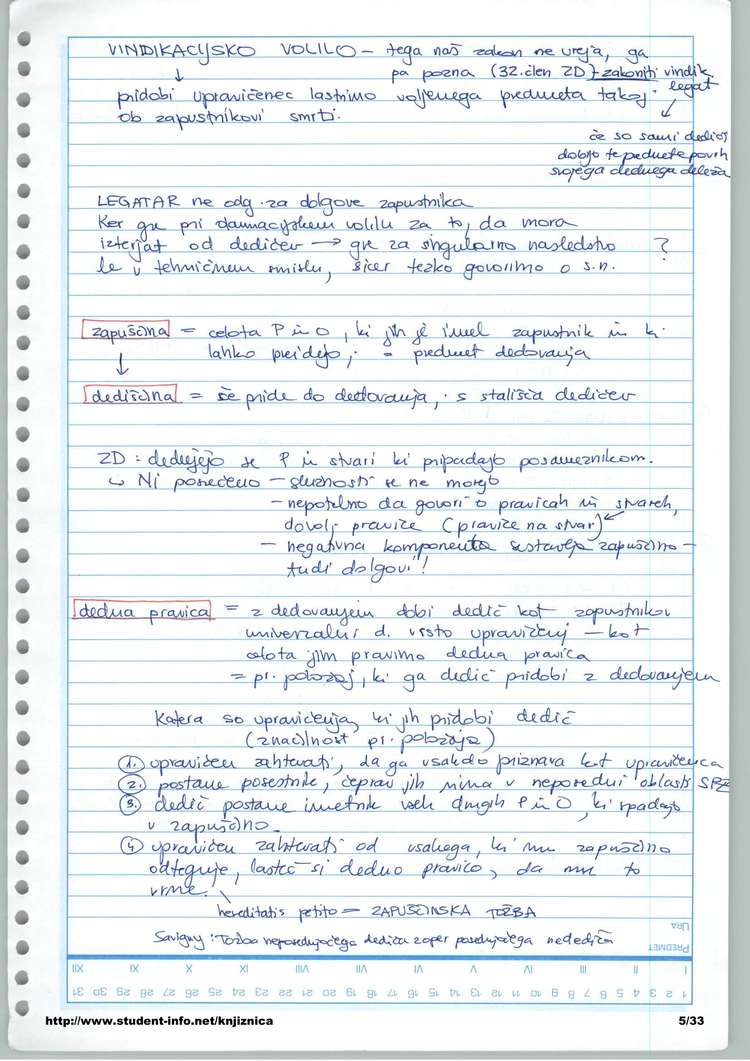 VINDIKACIJSKO VOLILO – tega naš zakon ne ureja, ga
pa pozna (32. člen ZD) – zakoniti vindik.
legat
↓
pridobi upravičenec lastnino voljenega predmeta takoj
ob zapustnikovi smrti.
če so sami dediči
dobijo te predmete povrh
svojega dednega deleža
LEGATAR ne odg. za dolgove zapustnika
Ker gre pri damnacijskem volilu za to, da mora
izterjat od dedičev → gre za singularno nasledstvo ?
le v tehničnem smislu, sicer težko govorimo o s.n.
zapuščina = celota P in O, ki jih je imel zapustnik in ki
lahko preidejo, = predmet dedovanja
↓
dediščina = že pride do dedovanja, s stališča dedičev
ZD: dedujejo se P in stvari ki pripadajo posameznikom.
↳ Ni posrečeno – služnosti se ne morejo
– nepotrebno da govori o pravicah in stvareh,
dovolj pravice (pravice na stvari)
– negativna komponenta sestavlja zapuščino –
tudi dolgovi!
dedna pravica = z dedovanjem dobi dedič kot zapustnikov
univerzalni d. vrsto upravičenj – kot
celota jim pravimo dedna pravica
= pr. položaj, ki ga dedič pridobi z dedovanjem
Katera so upravičenja, ki jih pridobi dedič
(značilnost pr. položaja)
1. upravičen zahtevati, da ga vsakdo priznava kot upravičenca
2. postane posestnik, čeprav jih nima v neposredni oblasti SPZ
3. dedič postane imetnik vseh drugih P in O, ki spadajo
v zapuščino.
4. upravičen zahtevati od vsakega, ki mu zapuščino
odteguje, lasteč si dedno pravico, da mu to
vrne.
hereditatis petitio = ZAPUŠČINSKA TOŽBA
Savigny: Tožba neposedujočega dediča zoper posedujočega nedediča
URA
PREDMET
XII XI X IX VIII VII VI V IV III II I
31 30 29 28 27 26 25 24 23 22 21 20 19 18 17 16 15 14 13 12 11 10 9 8 7 6 5 4 3 2 1
http://www.student-info.net/knjiznica 5/33